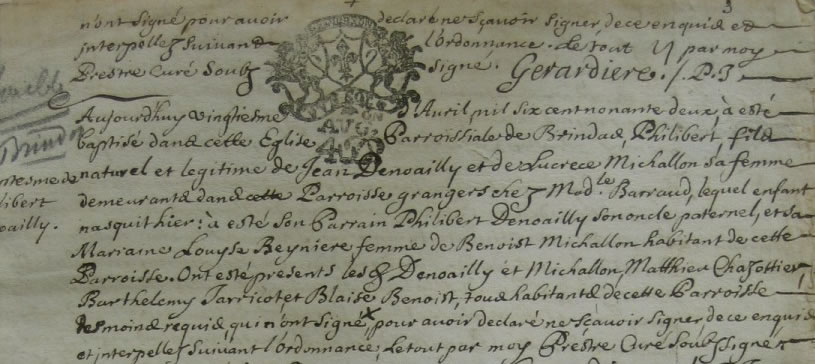 n'ont signé pour avoir declaré ne sçavoir signer, de ce enquis et
interpellez suivant l'ordonnance. Le tout par moy
Prestre Curé soubz signé. Gerardiere. P. J
Aujourdhuy vingtiesme d'Avril mil six cent nonante deux, à esté
baptisé dans cette Eglise Parroissiale de Brindas, Philibert, fils
naturel et legitime de Jean Denoailly et de Lucrece Michallon sa femme
demeurants dans cette Parroisse grangers chez Mad.le Barraud, lequel enfant
nasquit hier: à esté son Parrain Philibert Denoailly son oncle paternel, et sa
Maraine Louyse Beyniere femme de Benoist Michallon habitant de cette
Parroisse. Ont esté presents lesd. Denoailly et Michallon, Matthieu Chazottier,
Barthelemy Jarricot et Blaise Benoist, tous habitants de cette Parroisse
tesmoins requis qui n'ont signé, pour avoir declaré ne sçavoir signer de ce enquis
et interpellez suivant l'Ordonnance; le tout par moy Prestre Curé soubz signé
Brindas
ptesme de
libert
oailly.